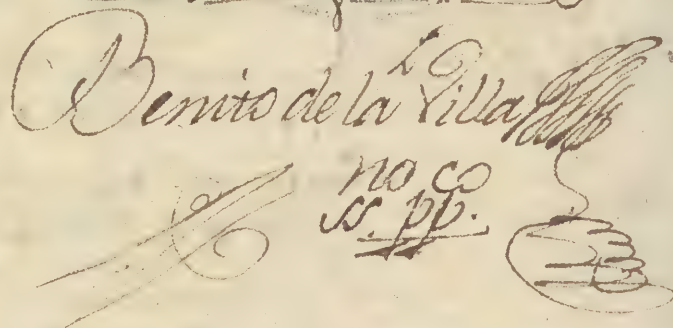 Benito de la Villa
no co
ss. pp.